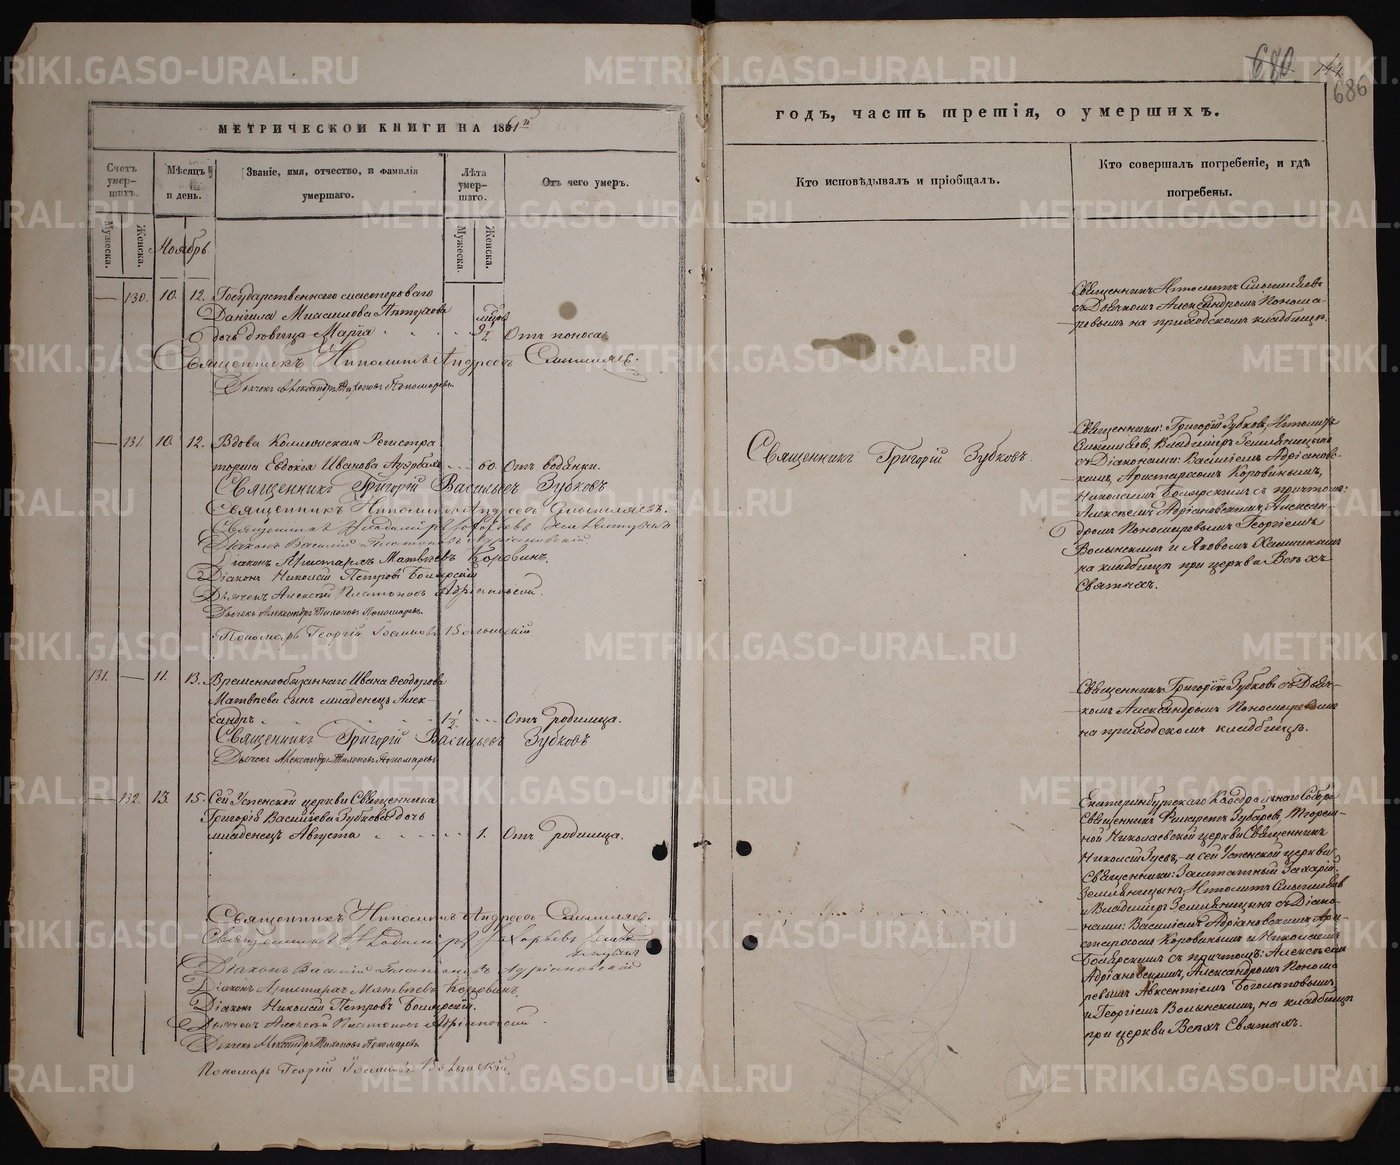 680
144
686
МЕТРИЧЕСКОЙ КНИГИ НА 1861й
годъ, часть третія, о умершихъ.
Счетъ умерших.
Мѣсяцъ и день.
Званіе, имя, отчество, и фамилія умершаго.
Лѣта умершаго.
Отъ чего умеръ.
Кто исповѣдывалъ и пріобщалъ.
Кто совершалъ погребеніе, и гдѣ погребены.
Мужеска.
Женска.
Мужеска.
Женска.
Ноябрь
— 130. 10. 12. Государственнаго мастероваго
Даніила
дочь дѣвица Марія 9½ Отъ поноса.
Священникъ Ипполитъ Андреевъ Смышляевъ.
Дьячекъ Александръ Тихоновъ Пономаревъ
Священникъ Ипполитъ Смышляевъ
съ Дьячкомъ Александромъ Понома-
ревымъ на приходскомъ кладбищѣ.
— 131. 10. 12. Вдова Коллежская Регистра
торша Евдокія Иванова 60 Отъ водянки.
Священникъ Григорій Васильевъ Зубковъ
Священникъ Ипполитъ Андреевъ Смышляевъ.
Священникъ Владиміръ Захаровъ Земляницынъ
Діаконъ Василій Платоновъ Адріановскій
Діаконъ Аристархъ Матвѣевъ Коровинъ.
Діаконъ Николай Петровъ Боярскій
Дьячекъ Алексѣй Платоновъ Адріановскій.
Дьячекъ Александръ Тихоновъ Пономаревъ.
Пономарь Георгій Іоанновъ Волынскій
Священникъ Григорій Зубковъ.
Священники: Григорій Зубковъ, Ипполитъ
Смышляевъ, Владиміръ Земляницынъ
съ Діаконами: Василіемъ Адріановс-
кимъ, Аристархомъ Коровинымъ,
Николаемъ Боярскимъ съ причтомъ:
Алексѣемъ Адріановскимъ, Алексан-
дромъ Пономаревымъ Георгіемъ
Волынскимъ и Яковомъ
на кладбищѣ при церкви Всѣхъ
Святыхъ.
131. — 11. 13. Временнообязаннаго Ивана Ѳеодорова
Матвѣева сынъ младенецъ Алек
сандръ 1½ Отъ родимца.
Священникъ Григорій Васильевъ Зубковъ
Дьячекъ Александръ Тихоновъ Пономаревъ
Священникъ Григорій Зубковъ съ Дьяч-
комъ Александромъ Пономаревымъ
на приходскомъ кладбищѣ.
— 132. 13. 15. Сей Успенской церкви Священника
Григорія Васильева Зубкова дочь
младенецъ Августа 1. Отъ родимца.
Священникъ Ипполитъ Андреевъ Смышляевъ.
Священникъ Владиміръ Захарьевъ Земля-
ницынъ
Діаконъ Василій Платоновъ Адріановскій
Діаконъ Аристархъ Матвѣевъ Коровинъ,
Діаконъ Николай Петровъ Боярскій.
Дьячекъ Алексѣй Платоновъ Адріановскій.
Дьячекъ Александръ Тихоновъ Пономаревъ
Пономарь Георгій Іоанновъ Волынскій.
Екатеринбургскаго Каѳедральнаго Собора
Священникъ Филаретъ Зубаревъ, Тюрем-
ной Николаевской церкви Священникъ
Николай Зуевъ, и сей Успенской церкви
Священники: Заштатный Захарій
Земляницынъ, Ипполитъ Смышляевъ
и Владиміръ Земляницынъ съ Діако-
нами: Василіемъ Адріановскимъ Ари-
стархомъ Коровинымъ и Николаемъ
Боярскимъ съ причтомъ: Алексѣемъ
Адріановскимъ, Александромъ Понома
ревымъ Авксентіемъ Боголѣповымъ
и Георгіемъ Волынскимъ, на кладбищѣ
при церкви Всѣхъ Святыхъ.
METRIKI.GASO-URAL.RU